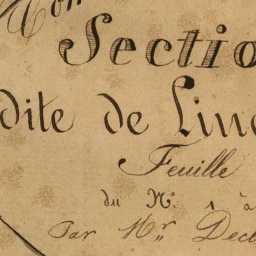 Section
dite de Lin
Feuille
du N°. 1 à
Par Mr. Decl